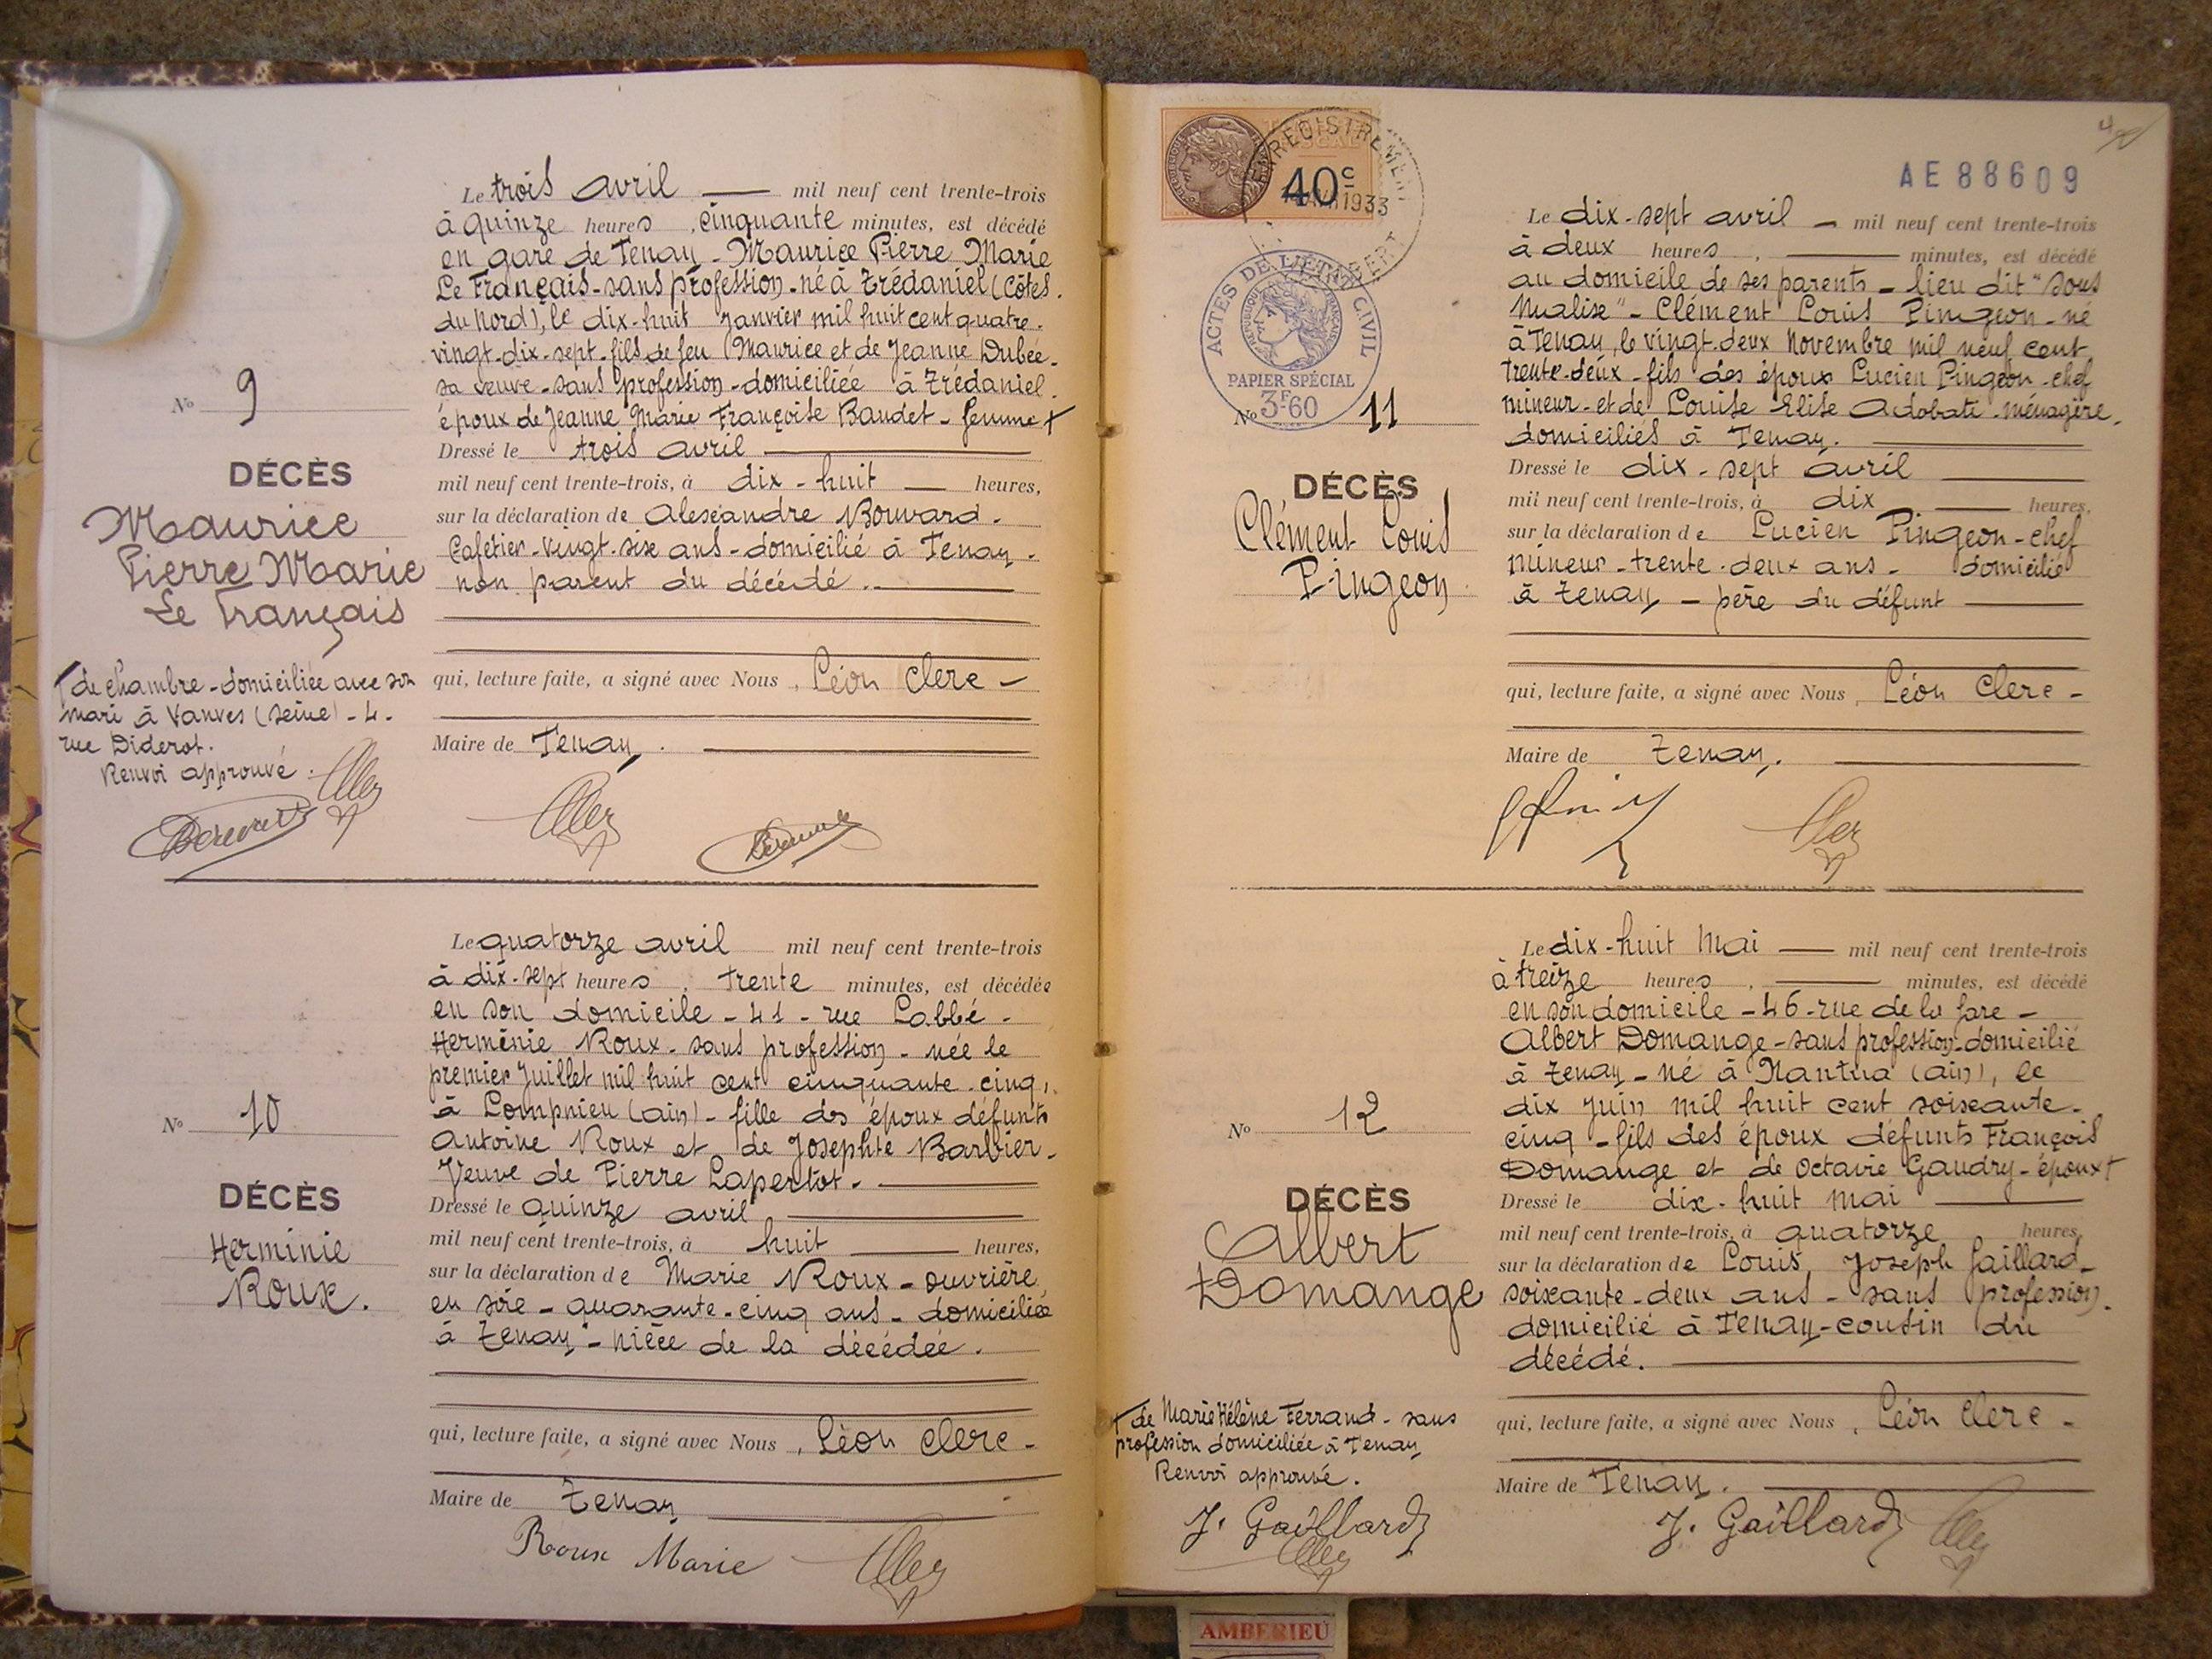 Le trois avril — mil neuf cent trente-trois
à quinze heures, cinquante minutes, est décédé
en gare de Tenay - Maurice Pierre Marie
Le Français - sans profession - né à Trédaniel (Côtes.
du Nord), le dix-huit Janvier mil huit cent quatre.
vingt-dix-sept - fils de feu Maurice et de Jeanne Dubée -
sa veuve - sans profession - domiciliée à Trédaniel.
époux de Jeanne Marie Françoise Baudet - femme †
No 9
DÉCÈS
Maurice
Pierre Marie
Le Français
Dressé le trois avril
mil neuf cent trente-trois, à dix-huit — heures,
sur la déclaration de Alexandre Bouvard.
Cafetier - vingt-six ans - domicilié à Tenay -
non parent du décédé.
† de chambre - domiciliée avec son
mari à Vanves (Seine) - 4 -
rue Diderot.
Renvoi approuvé.
qui, lecture faite, a signé avec Nous, Léon Clerc -
Maire de Tenay.
Le quatorze avril mil neuf cent trente-trois
à dix-sept heures, trente minutes, est décédée
en son domicile - 41 - rue Labbé -
Herminie Roux - sans profession - née le
premier Juillet mil huit cent cinquante-cinq,
à Lompnieu (ain) - fille des époux défunts
Antoine Roux et de Josephte Barbier -
Veuve de Pierre Lapertot.
No 10
DÉCÈS
Herminie
Roux.
Dressé le quinze avril
mil neuf cent trente-trois, à huit heures,
sur la déclaration de Marie Roux - ouvrière
en soie - quarante-cinq ans - domiciliée
à Tenay - nièce de la décédée.
qui, lecture faite, a signé avec Nous, Léon Clerc -
Maire de Tenay
Roux Marie
ENREGISTREMENT
40c
1933
AE 88609
ACTES DE L'ETAT CIVIL
REPUBLIQUE FRANÇAISE
PAPIER SPÉCIAL
3F60
Le dix-sept avril — mil neuf cent trente-trois
à deux heures, — minutes, est décédé
au domicile de ses parents - lieu dit "Sous
Malix" - Clément Louis Pingeon - né
à Tenay, le vingt-deux Novembre mil neuf cent
trente-deux - fils des époux Lucien Pingeon - chef
mineur - et de Louise Elise Adobati - ménagère.
domiciliés à Tenay.
No 11
DÉCÈS
Clément Louis
Pingeon
Dressé le dix-sept avril
mil neuf cent trente-trois, à dix heures,
sur la déclaration de Lucien Pingeon - chef
mineur - trente-deux ans - domicilié
à Tenay - père du défunt
qui, lecture faite, a signé avec Nous, Léon Clerc -
Maire de Tenay.
Le dix-huit Mai — mil neuf cent trente-trois
à treize heures, — minutes, est décédé
en son domicile - 46 - rue de la gare -
Albert Domange - sans profession - domicilié
à Tenay - né à Nantua (ain), le
dix Juin mil huit cent soixante-
cinq - fils des époux défunts François
Domange et de Octavie Gaudry - époux †
No 12
DÉCÈS
Albert
Domange
Dressé le dix-huit Mai
mil neuf cent trente-trois, à quatorze heures,
sur la déclaration de Louis, Joseph Gaillard -
soixante-deux ans - sans profession.
domicilié à Tenay - cousin du
décédé.
† de Marie Hélène Ferrand - sans
profession domiciliée à Tenay
Renvoi approuvé.
J. Gaillard
qui, lecture faite, a signé avec Nous, Léon Clerc -
Maire de Tenay.
J. Gaillard
AMBERIEU